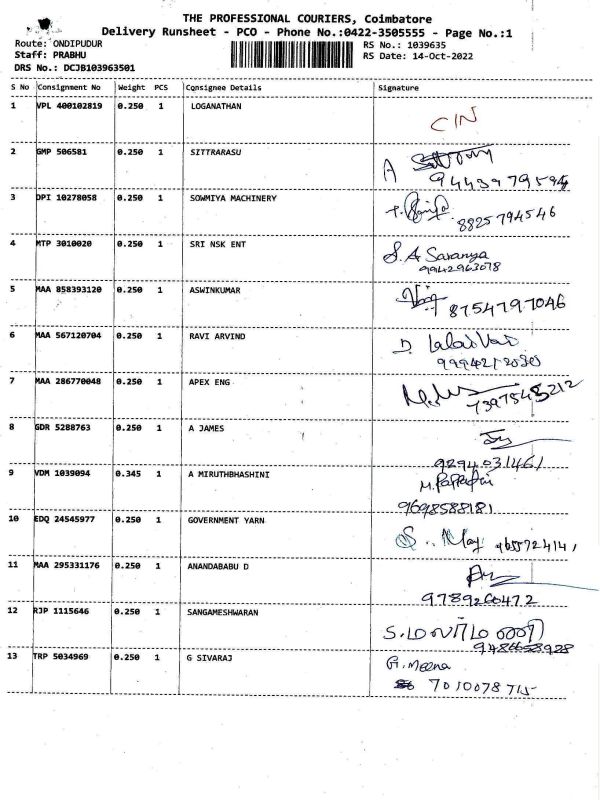 THE PROFESSIONAL COURIERS, Coimbatore
Delivery Runsheet - PCO - Phone No.:0422-3505555 - Page No.:1
Route: ONDIPUDUR RS No.: 1039635
Staff: PRABHU RS Date: 14-Oct-2022
DRS No.: DCJB103963501
S No Consignment No Weight PCS Consignee Details Signature
1 VPL 400102819 0.250 1 LOGANATHAN
CIN
2 GMP 506581 0.250 1 SITTRARASU
A
3 DPI 10278058 0.250 1 SOWMIYA MACHINERY
8825794546
4 MTP 3010020 0.250 1 SRI NSK ENT
S. A Saranya
9942963078
5 MAA 858393120 0.250 1 ASWINKUMAR
8754797046
6 MAA 567120704 0.250 1 RAVI ARVIND
D.
7 MAA 286770048 0.250 1 APEX ENG
8 GDR 5288763 0.250 1 A JAMES
9294031461
9 VDM 1039094 0.345 1 A MIRUTHBHASHINI
9698588181
10 EDQ 24545977 0.250 1 GOVERNMENT YARN
S. May
11 MAA 295331176 0.250 1 ANANDABABU D
9789260472
12 RJP 1115646 0.250 1 SANGAMESHWARAN
13 TRP 5034969 0.250 1 G SIVARAJ
G. Meena
7010078715